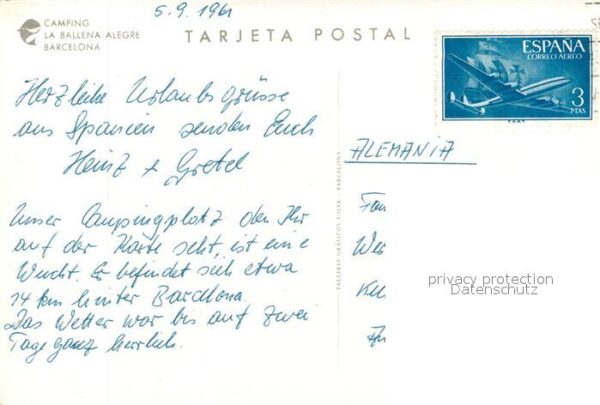 5.9.1961
CAMPING
LA BALLENA ALEGRE
BARCELONA
TARJETA POSTAL
ESPAÑA
CORREO AEREO
3
PTAS
Herzliche Urlaubsgrüsse
aus Spanien senden Euch
Heinz + Gretel
Unser Campingplatz den Ihr
auf der Karte seht, ist eine
Wucht. Er befindet sich etwa
14 km hinter Barcelona.
Das Wetter war bis auf zwei
Tage ganz herrlich.
TALLERES GRÁFICOS SOLER - BARCELONA
ALEMANIA
Fam
Wer
privacy protection
Datenschutz